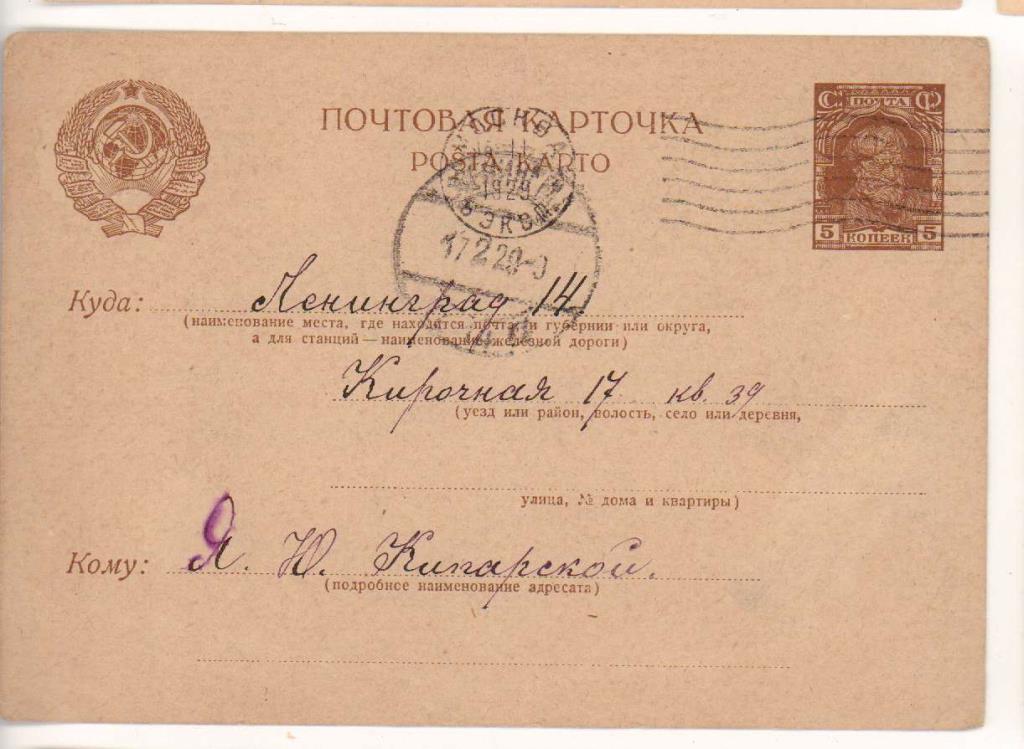 ПОЧТОВАЯ КАРТОЧКА
POŜTA KARTO
С ПОЧТА Ф
5 КОПЕЕК 5
1929
17 2 29
Куда: Ленинград 14
(наименование места, где находится почта, и губернии или округа,
а для станций — наименование железной дороги)
Кирочная 17 кв. 39
(уезд или район, волость, село или деревня,
улица, № дома и квартиры)
Кому: Я. Ю. Кипарской.
(подробное наименование адресата)